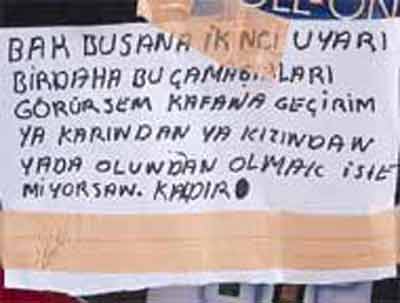 LL-ON
BAK BU SANA İKİNCİ UYARI
BİRDAHA BU ÇAMAŞIRLARI
GÖRÜRSEM KAFANA GEÇİRİM
YA KARINDAN YA KIZINDAN
YADA OLUNDAN OLMAK İSTE
MİYORSAN. KALDIR